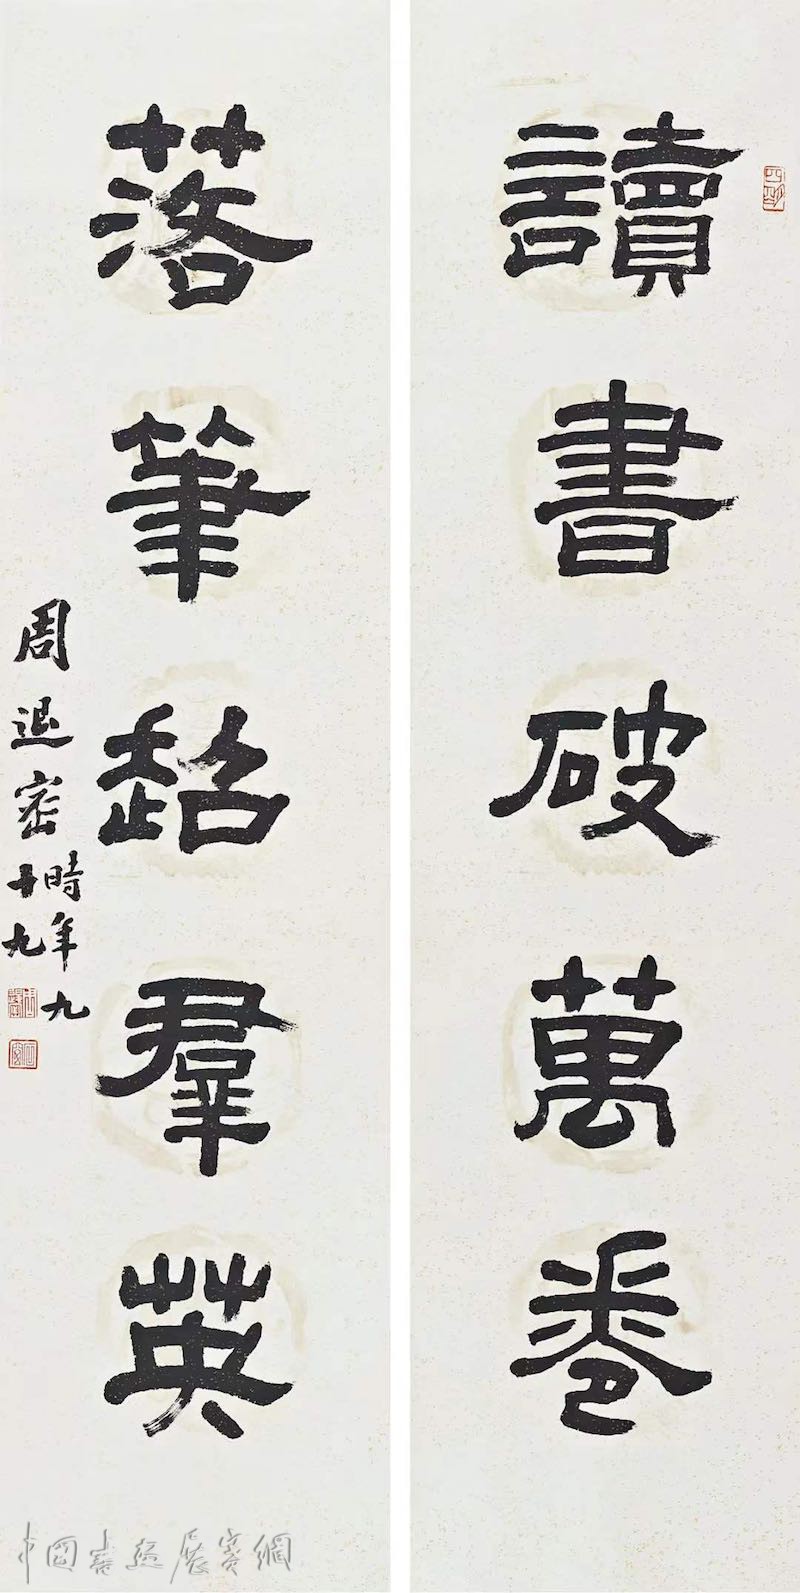 讀書破萬卷
落筆超羣英
周退密時年九
十九
四明
中國書畫展賽網